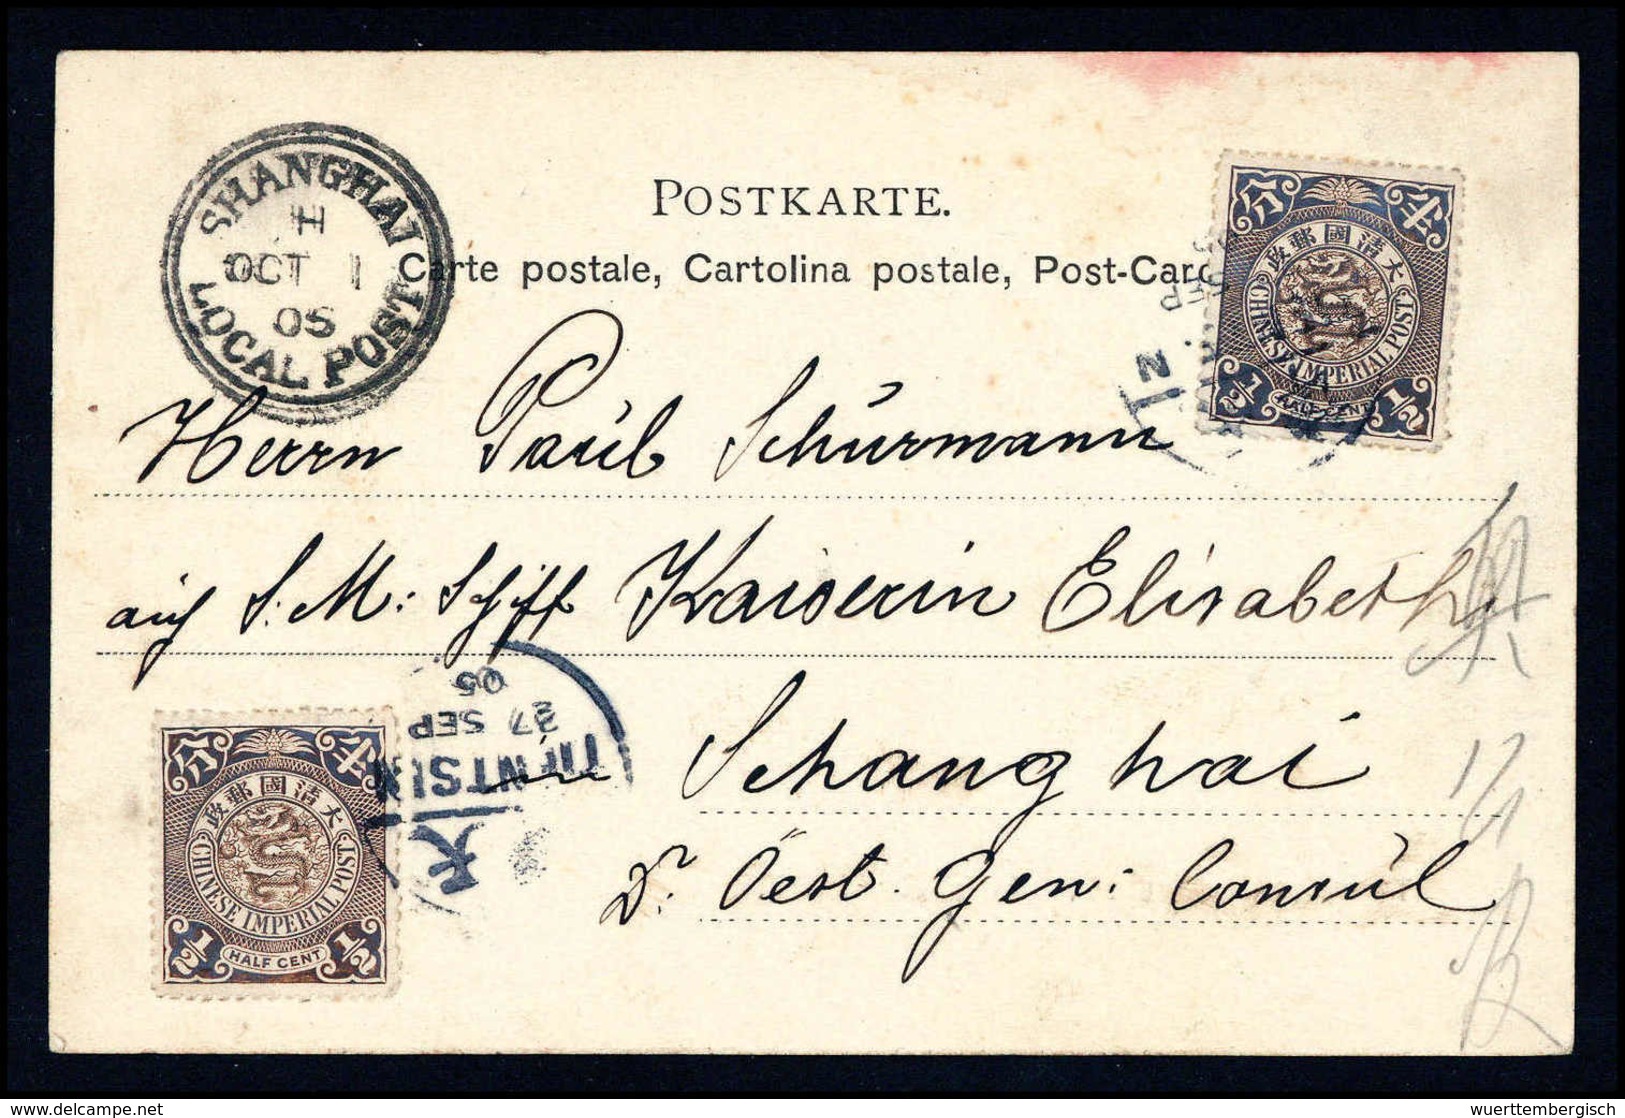 POSTKARTE.
Carte postale, Cartolina postale, Post-Card
SHANGHAI
H
OCT 1
05
LOCAL POST
半 分
大清國郵政
CHINESE IMPERIAL POST
1/2 HALF CENT 1/2
Herrn Paul Schürmann
auf S. M. Schiff Kaiserin Elisabeth
in Schanghai
Dr. Öest. Gen: Consul
TIENTSIN
27 SEP
05
半 分
大清國郵政
CHINESE IMPERIAL POST
1/2 HALF CENT 1/2
wuerttembergisch